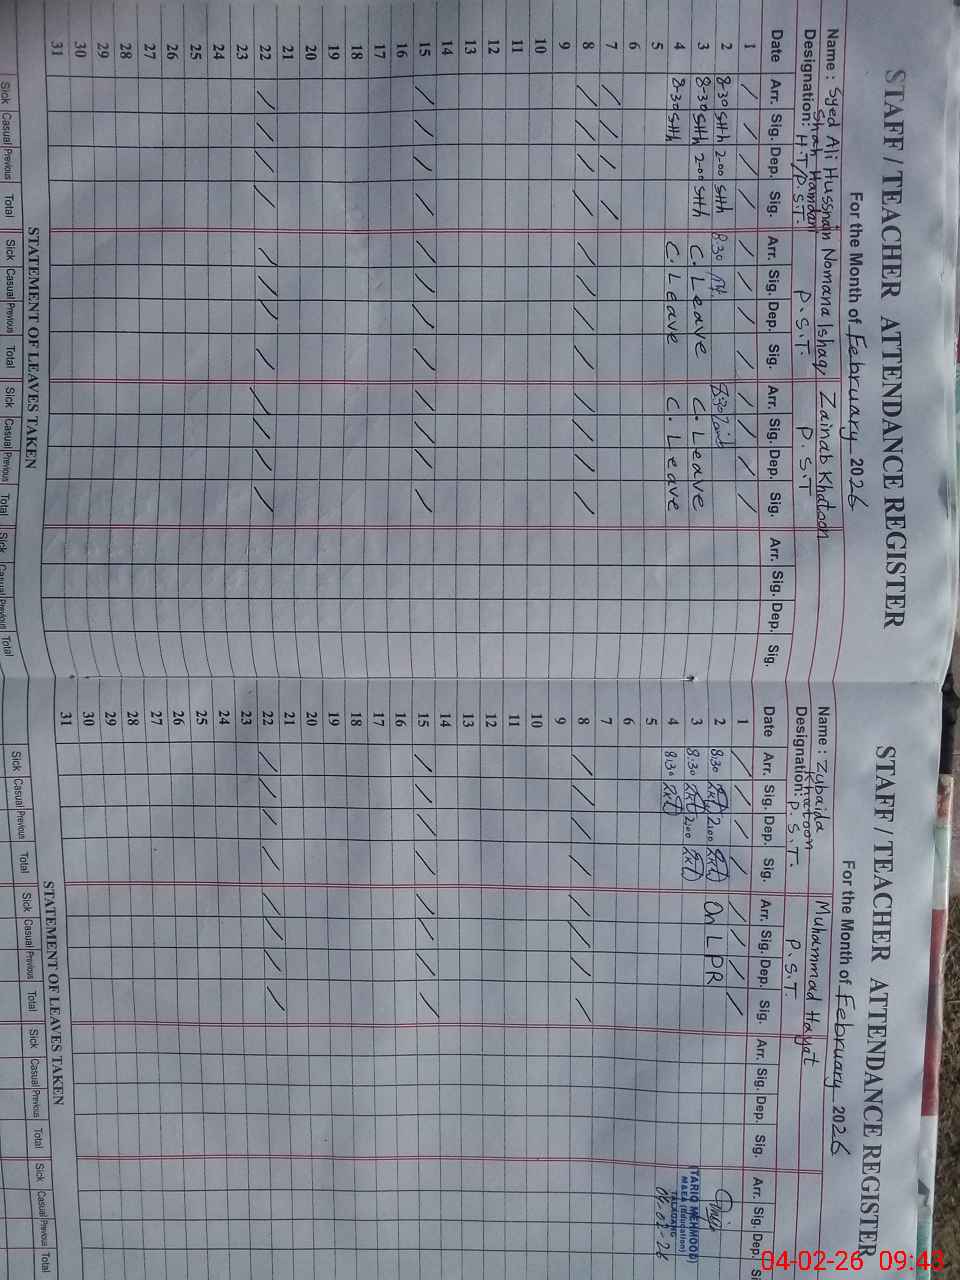 STAFF / TEACHER ATTENDANCE REGISTER
For the Month of February 2026
Name : Syed Ali Hussnain Shah Hamdani
Nomana Ishaq
Zainab Khatoon
Designation: H.T/P.S.T.
P.S.T.
P.S.T
Date Arr. Sig. Dep. Sig. Arr. Sig. Dep. Sig. Arr. Sig. Dep. Sig. Arr. Sig. Dep. Sig.
1 / / / / / / / / / / / /
2 8-30 SHh 2-00 SHh 8:30 8:30
3 8-30 SHh 2-00 SHh C. Leave C. Leave
4 8-30 SHh C. Leave C. Leave
5
6
7 / / / /
8 / / / / / / / / / / / /
9
10
11
12
13
14
15 / / / / / / / / / / / /
16
17
18
19
20
21
22 / / / / / / / / / / / /
23
24
25
26
27
28
29
30
31
STATEMENT OF LEAVES TAKEN
Sick Casual Previous Total Sick Casual Previous Total Sick Casual Previous Total Sick Casual Previous Total
STAFF / TEACHER ATTENDANCE REGISTER
For the Month of February 2026
Name : Zubaida Khatoon
Muhammad Hayat
Designation: P.S.T.
P.S.T.
Date Arr. Sig. Dep. Sig. Arr. Sig. Dep. Sig. Arr. Sig. Dep. Sig. Arr. Sig. Dep. Si
1 / / / / / / / /
2 8:30 2:00 On LPR
3 8:30 2:00
4 8:30
5
6
7
8 / / / / / / / /
9
10
11
12
13
14
15 / / / / / / / /
16
17
18
19
20
21
22 / / / / / / / /
23
24
25
26
27
28
29
30
31
(TARIQ MEHMOOD)
M&EA (Education)
TALAGANG
04-02-26
STATEMENT OF LEAVES TAKEN
Sick Casual Previous Total Sick Casual Previous Total Sick Casual Previous Total Sick Casual Previous Total
04-02-26 09:43